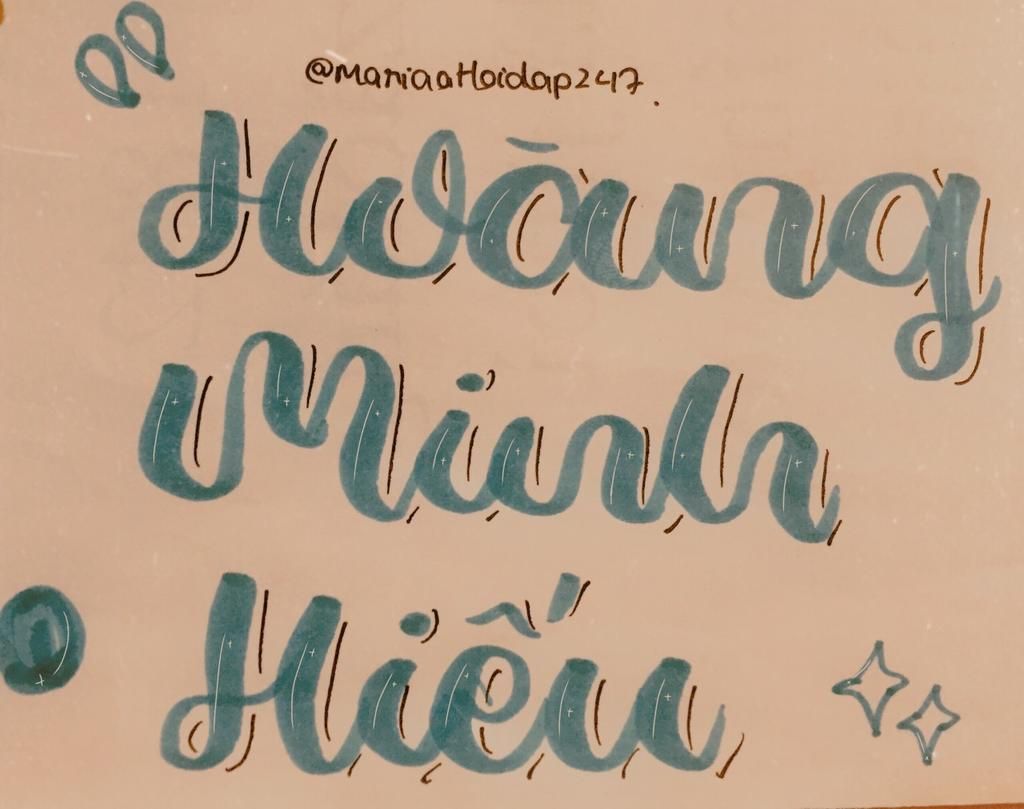 @mariaaHoidap247.
Hoàng
Minh
Hiếu